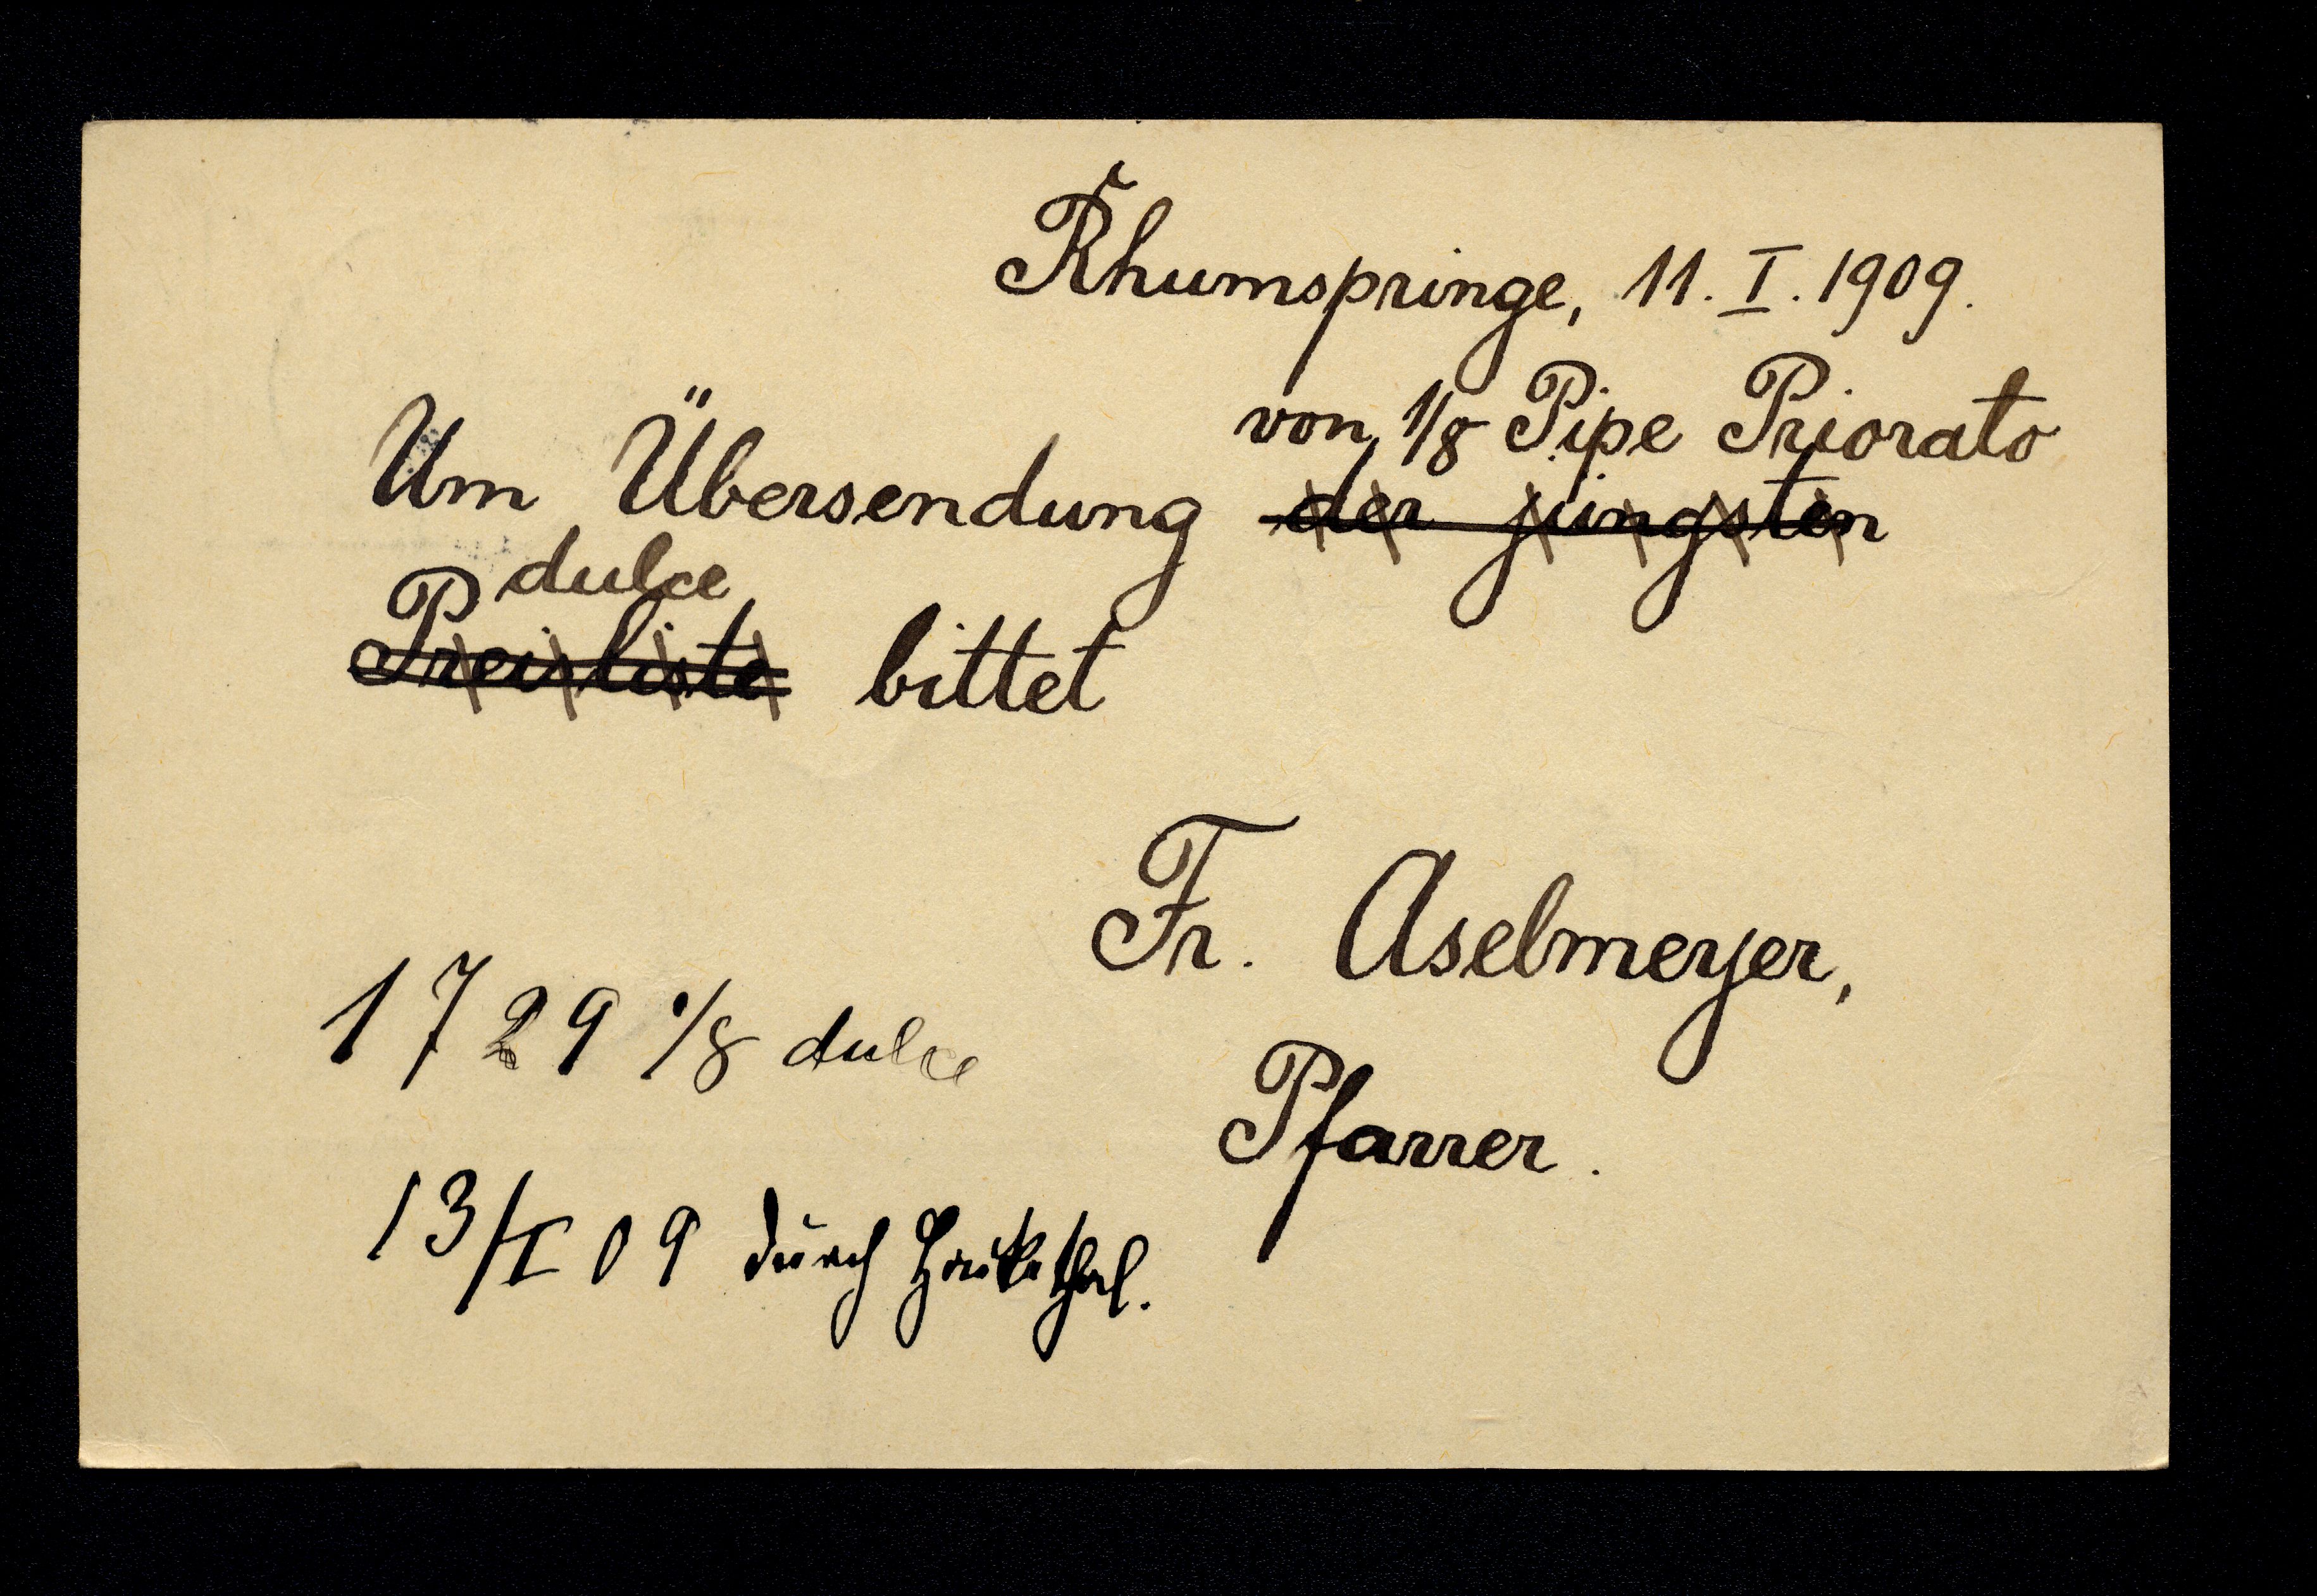 Rhumspringe, 11. I. 1909.
von 1/8 Pipe Priorato
Um Übersendung der jüngsten
dulce
Preisliste bittet
Fr. Aselmeyer,
Pfarrer.
1729 1/8 dulce
13/I 09 durch